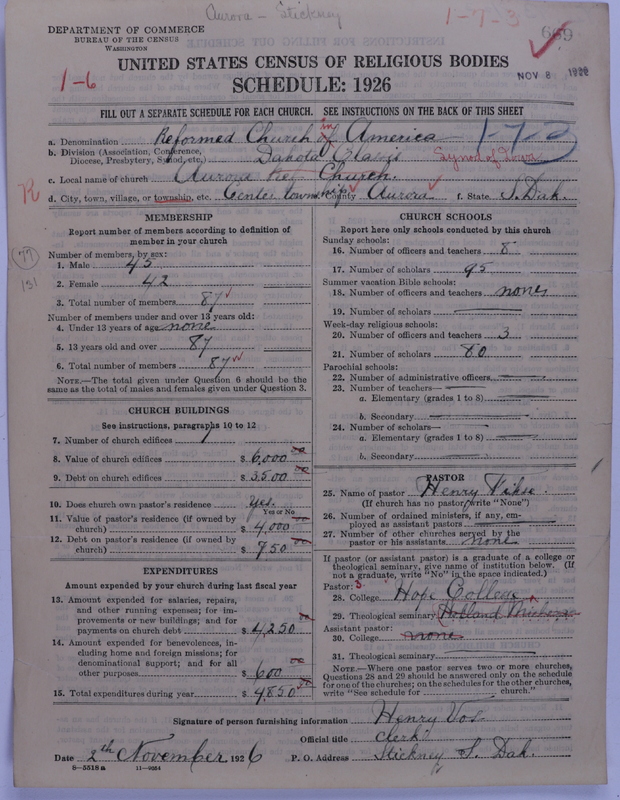 Aurora - Stickney
1-7-3
DEPARTMENT OF COMMERCE
BUREAU OF THE CENSUS
WASHINGTON
669
UNITED STATES CENSUS OF RELIGIOUS BODIES
SCHEDULE: 1926
1-6
NOV 8 1926
FILL OUT A SEPARATE SCHEDULE FOR EACH CHURCH. SEE INSTRUCTIONS ON THE BACK OF THIS SHEET
a. Denomination Reformed Church in America 1-7-3
b. Division (Association, Conference, Diocese, Presbytery, Synod, etc.) Dakota Classis Synod of Iowa
c. Local name of church Aurora Ref Church.
R
d. City, town, village, or township, etc. Center township County Aurora f. State S. Dak.
MEMBERSHIP
Report number of members according to definition of
member in your church
77
131
Number of members, by sex:
1. Male 45
2. Female 42
3. Total number of members 87
Number of members under and over 13 years old:
4. Under 13 years of age none
5. 13 years old and over 87
6. Total number of members 87
NOTE.—The total given under Question 6 should be the
same as the total of males and females given under Question 3.
CHURCH BUILDINGS
See instructions, paragraphs 10 to 12
7. Number of church edifices 1
8. Value of church edifices $ 6,000 00
9. Debt on church edifices $ 3500 00
10. Does church own pastor's residence yes.
Yes or No
11. Value of pastor's residence (if owned by
church) $ 4,000 00
12. Debt on pastor's residence (if owned by
church) $ 750 00
EXPENDITURES
Amount expended by your church during last fiscal year
13. Amount expended for salaries, repairs,
and other running expenses; for im-
provements or new buildings; and for
payments on church debt $ 4,250 00
14. Amount expended for benevolences, in-
cluding home and foreign missions; for
denominational support; and for all
other purposes $ 600 00
15. Total expenditures during year $ 4,850 00
CHURCH SCHOOLS
Report here only schools conducted by this church
Sunday schools:
16. Number of officers and teachers 8
17. Number of scholars 95
Summer vacation Bible schools:
18. Number of officers and teachers none
19. Number of scholars
Week-day religious schools:
20. Number of officers and teachers 3
21. Number of scholars 80
Parochial schools:
22. Number of administrative officers
23. Number of teachers—
a. Elementary (grades 1 to 8)
b. Secondary
24. Number of scholars—
a. Elementary (grades 1 to 8)
b. Secondary
PASTOR
25. Name of pastor Henry
(If church has no pastor, write "None")
26. Number of ordained ministers, if any, em-
ployed as assistant pastors
27. Number of other churches served by the
pastor or his assistants none
If pastor (or assistant pastor) is a graduate of a college or
theological seminary, give name of institution below. (If
not a graduate, write "No" in the space indicated.)
Pastor:
28. College Hope College
29. Theological seminary Holland Michigan
Assistant pastor:
30. College none
31. Theological seminary
NOTE.—Where one pastor serves two or more churches,
Questions 28 and 29 should be answered only on the schedule
for one of the churches; on the schedules for the other churches,
write "See schedule for church."
Signature of person furnishing information Henry Vos
Official title Clerk
Date 2th November, 1926 P. O. Address Stickney S. Dak.
8-5518 a 11-9354